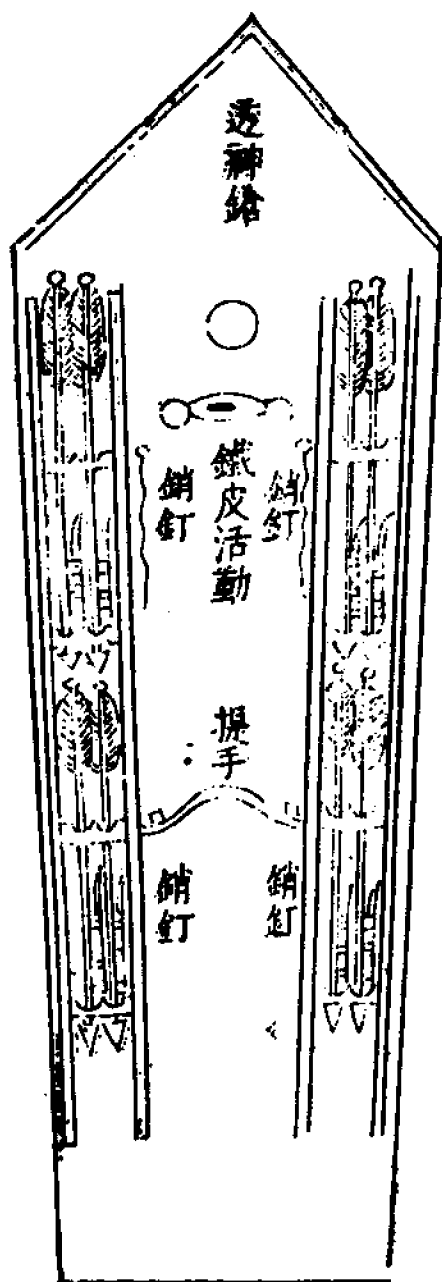 透神鎗
銷釘
鐵皮活動
銷釘
提手
銷釘
銷釘